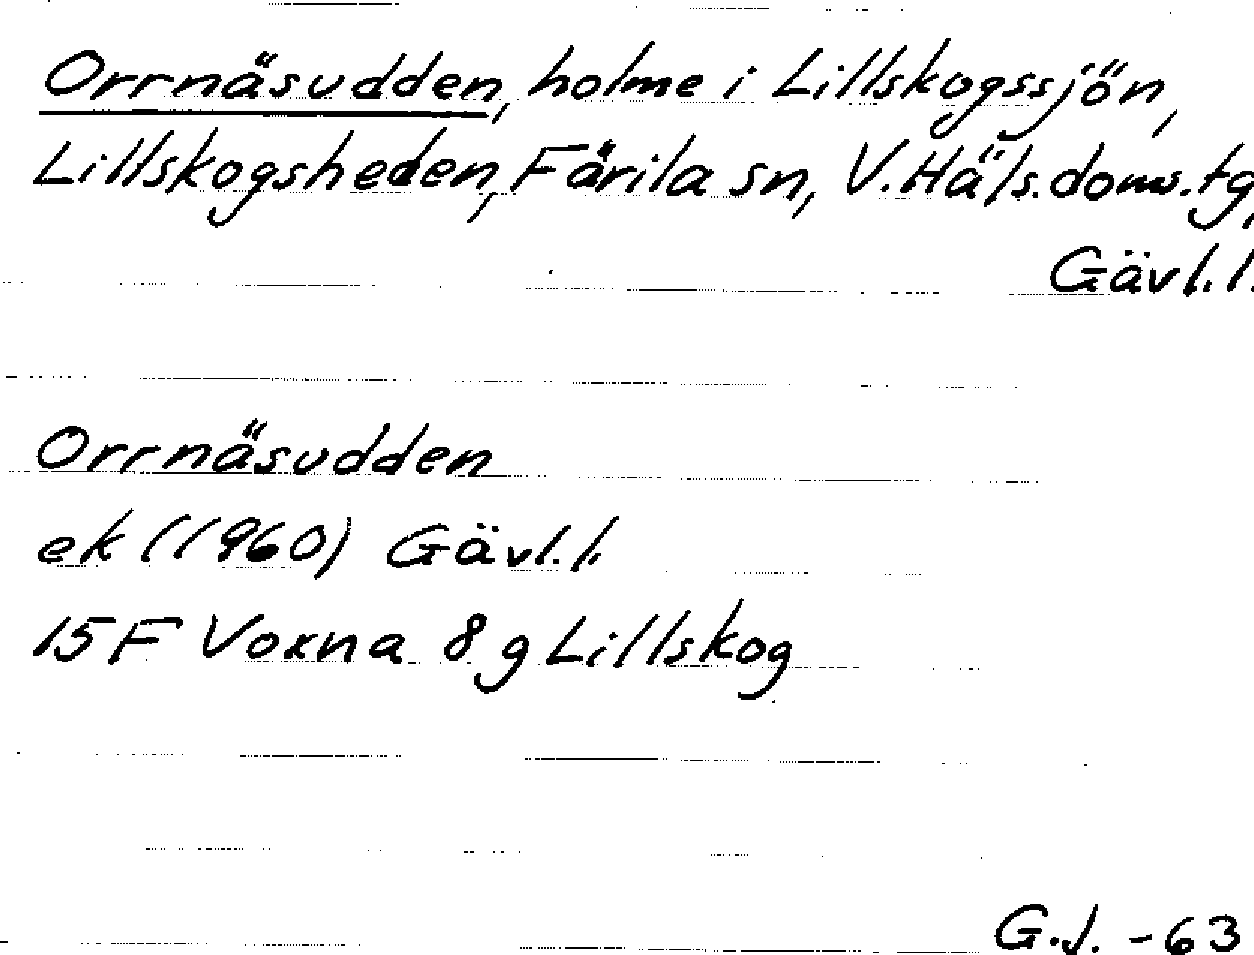 Orrnäsudden, holme i Lillskogssjön,
Lillskogsheden, Färila sn, V. Häls. doms. tg,
Gävl. l.
Orrnäsudden
ek (1960) Gävl. l.
15 F Voxna 8 g Lillskog
G.J. -63